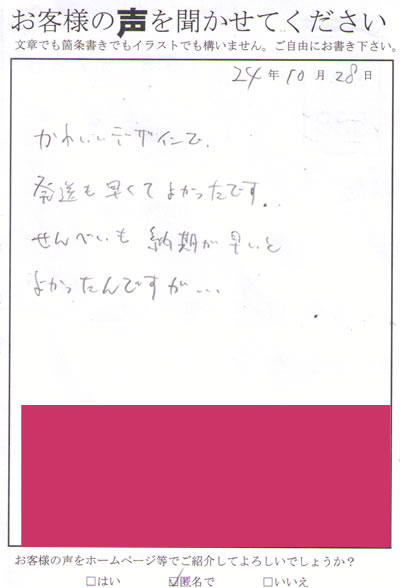 お客様の声を聞かせてください
文章でも箇条書きでもイラストでも構いません。ご自由にお書き下さい。
24年10月28日
かわいいデザインで、
発送も早くてよかったです。
せんべいも納期が早いと
よかったんですが...
お客様の声をホームページ等でご紹介してよろしいでしょうか?
□はい ☑匿名で □いいえ